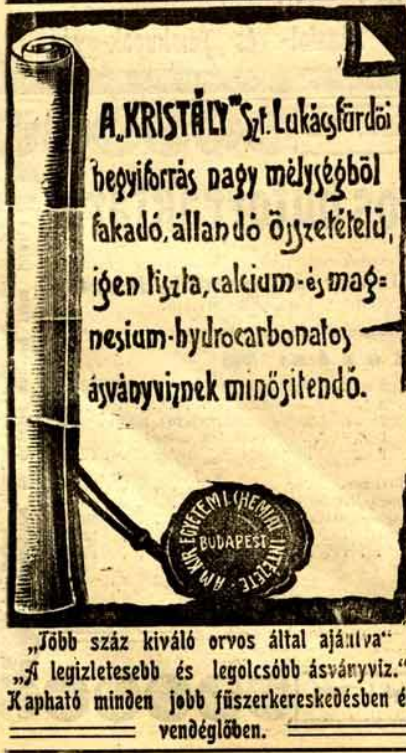 A „KRISTÁLY” Szt. Lukácsfürdői
hegyiforrás nagy mélységből
fakadó, állandó összetételű,
igen tiszta, calcium- és mag-
nesium-hydrocarbonatos
ásványviznek minősitendő.
A M. KIR. EGYETEMI CHEMIAI INTÉZETE
BUDAPEST
„Több száz kiváló orvos által ajánlva“
„A legizletesebb és legolcsóbb ásványviz.“
Kapható minden jobb fűszerkereskedésben é
vendéglőben.